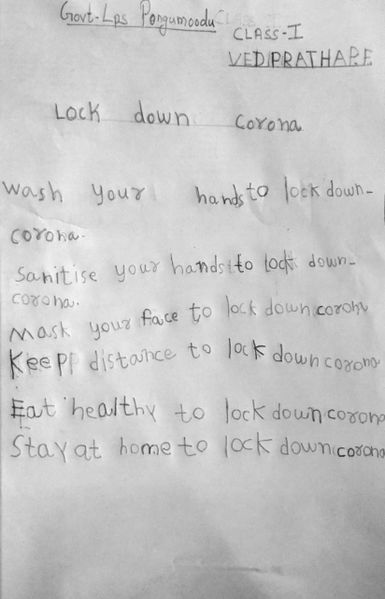 Govt-Lps Pongumoodu
CLASS-I
VEDIPRATHAPE
Lock down corona
Wash your hands to lock down-
corona.
Sanitise your hands to lock down-
corona.
Mask your face to lock down corona
Keepp distance to lock down corona
Eat healthy to lock down corona
Stay at home to lock down corona